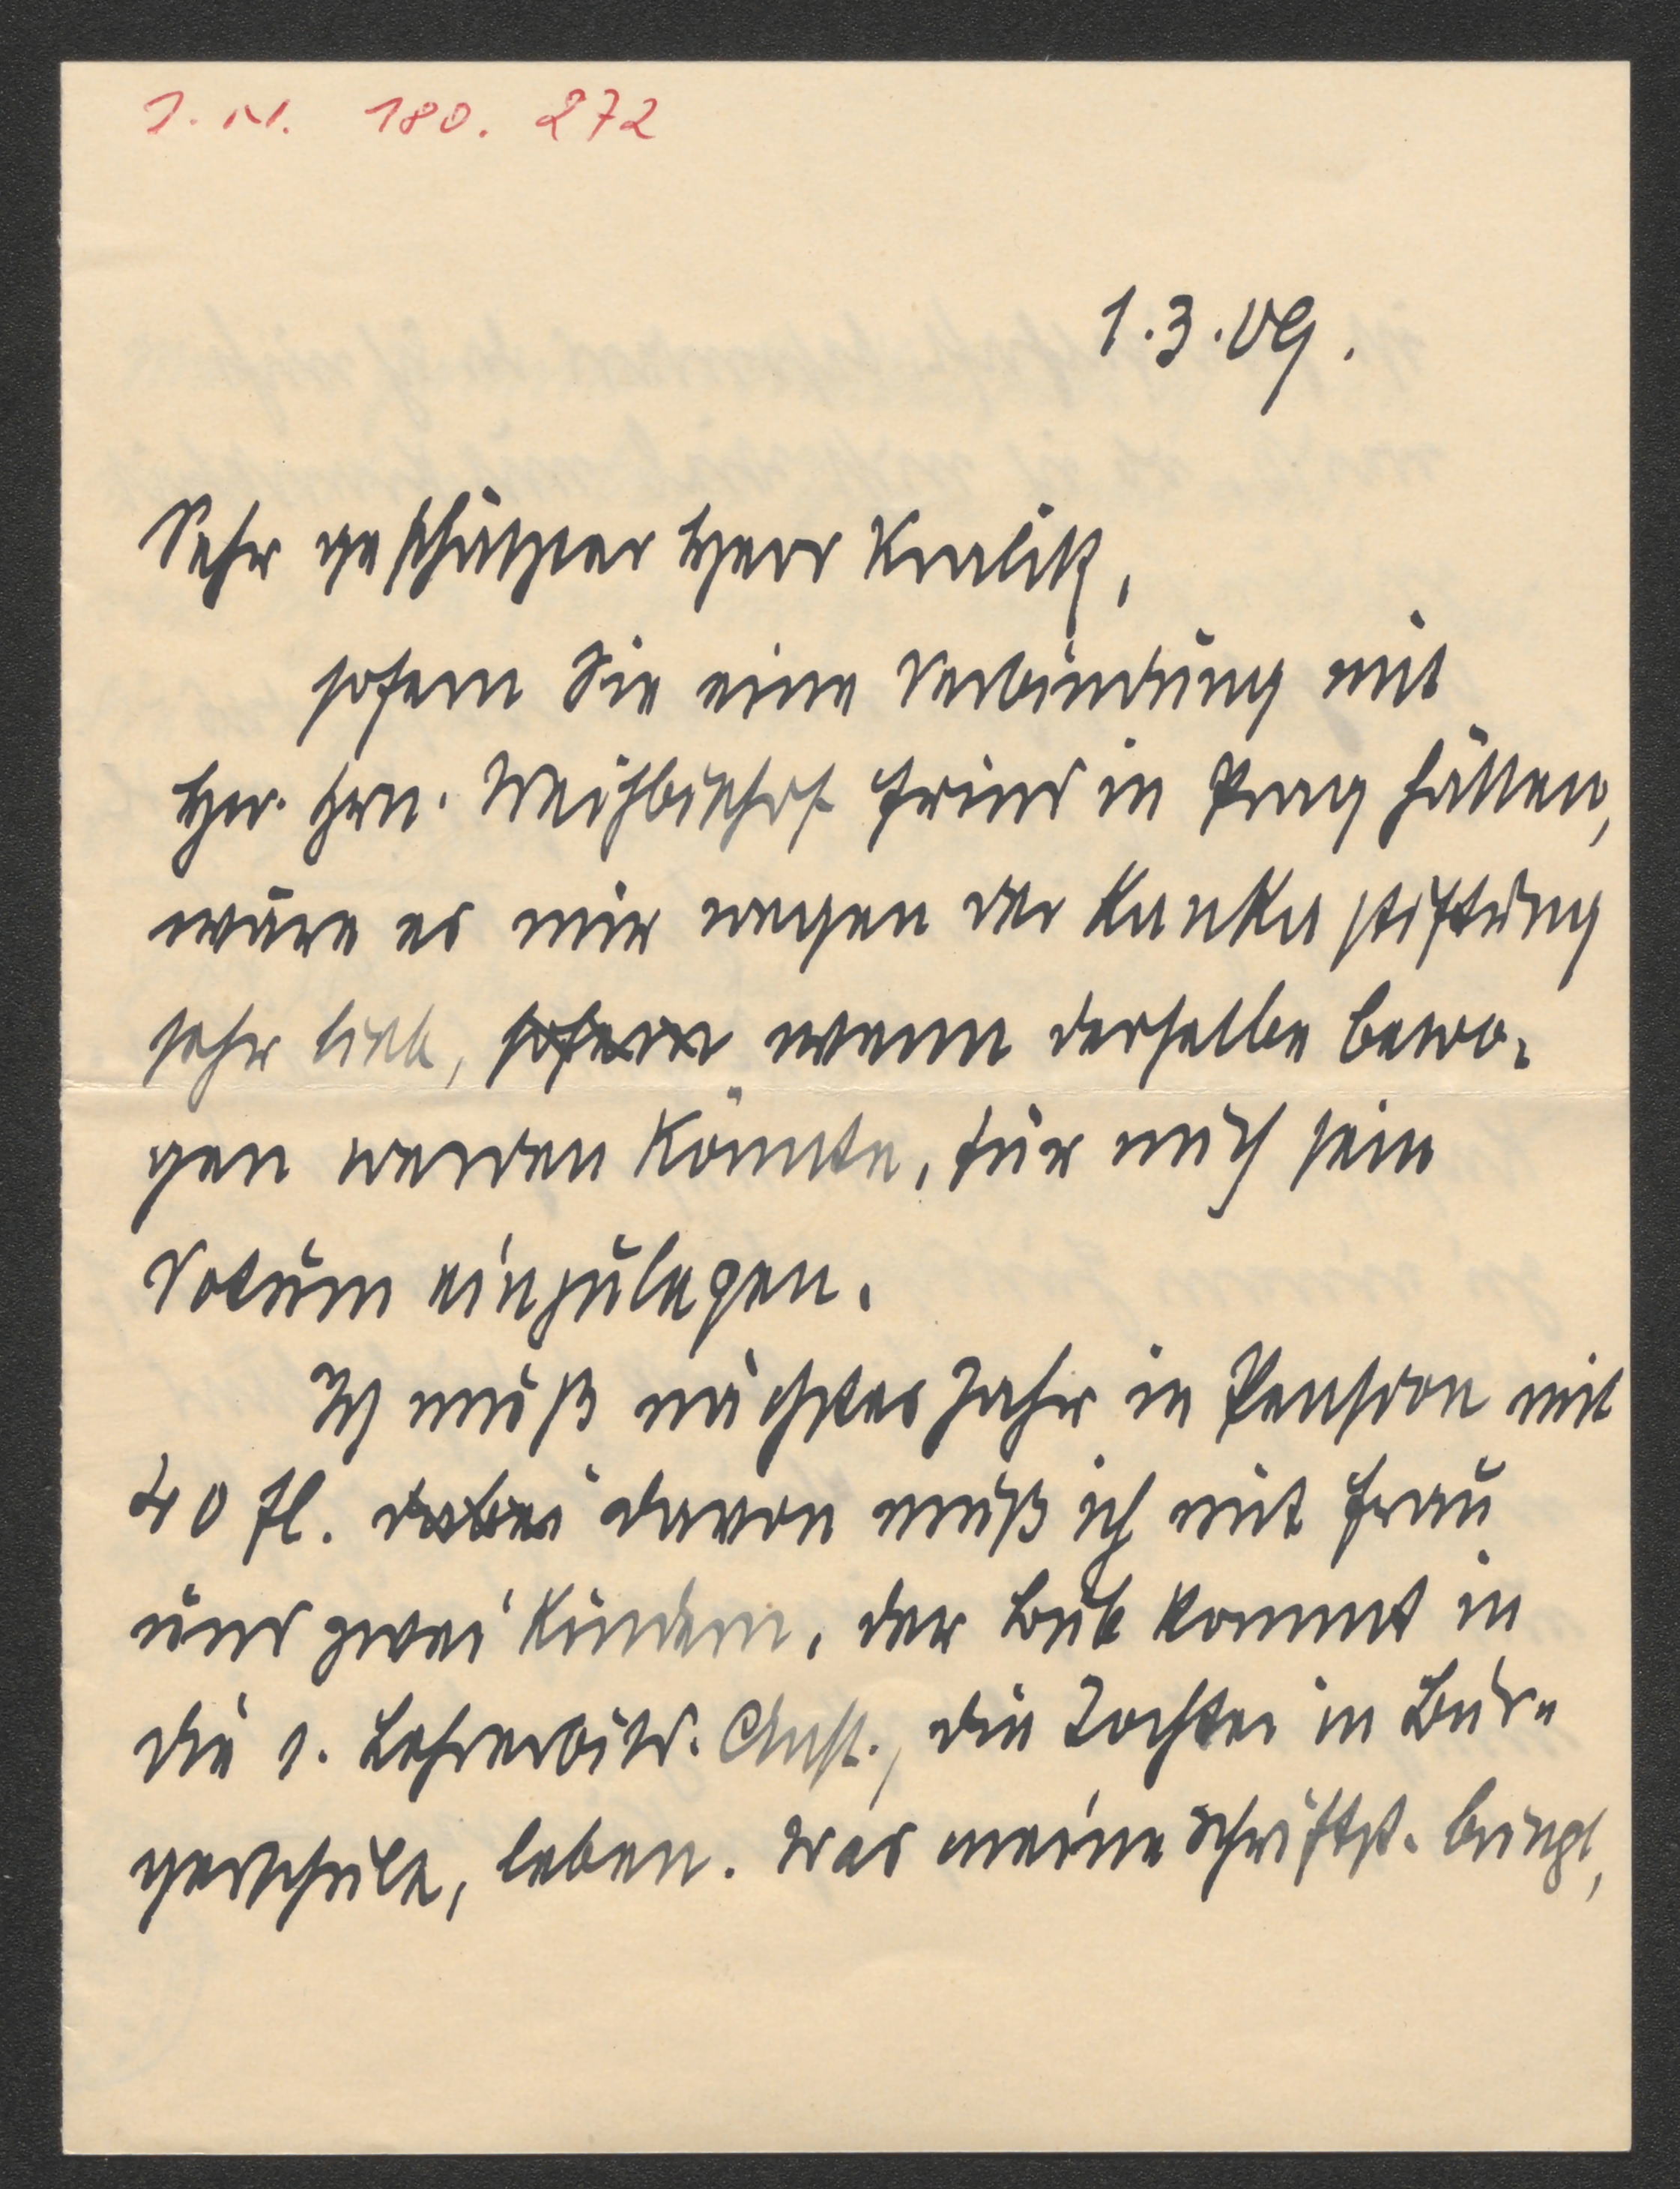 I. N. 180. 272
1.3.09.
Sehr geschätzter Herr Kralik,
sofern Sie eine Verbindung mit
Hrn. Weihbischof Frind in Prag hätten,
wäre es mir wegen der Lankastiftung
sehr lieb, sofern wenn derselbe bewo-
gen werden könnte, für mich sein
Votum einzulegen.
Ich muß nächstes Jahr in Pension mit
40 fl. dabei davon muß ich mit Frau
und zwei Kindern, der Bub kommt in
die 1. Lehrerbild. Anst., die Tochter in Bür-
gerschule, leben. Was meine Schriftst. bringt,